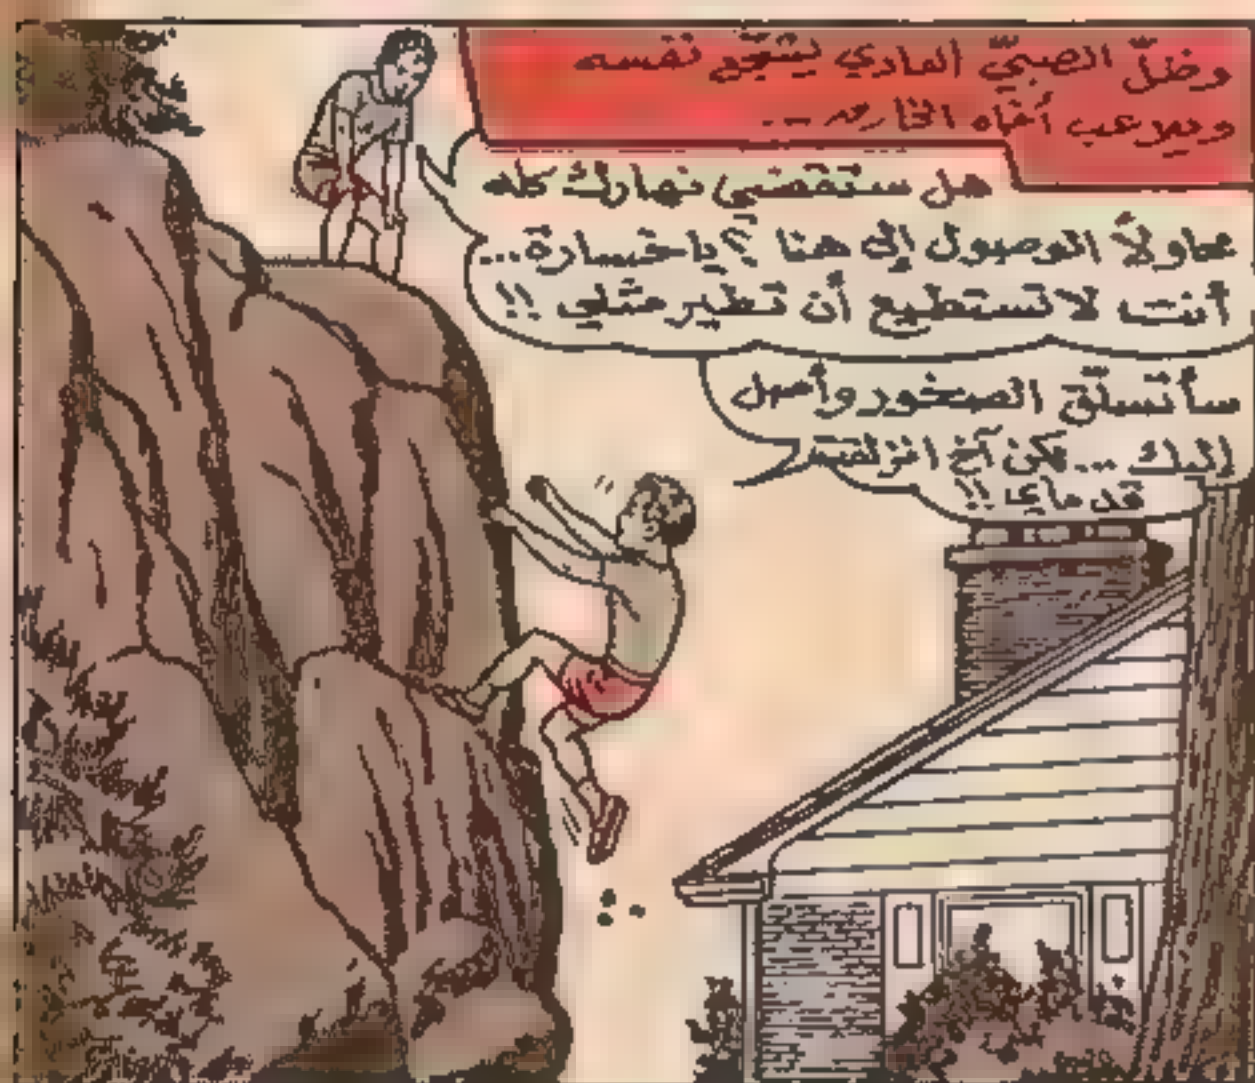 وظلّ الصبيّ العادي يشجّع نفسه
ويلاعب أخاه الخارق ...
هل ستقضي نهارك كله
محاولاً الوصول إلى هنا ؟ ياخسارة...
أنت لا تستطيع أن تطير مثلي !!
سأتسلّق الصخور وأصل
إليك ... لكن آخ انزلقت
قدماي !!